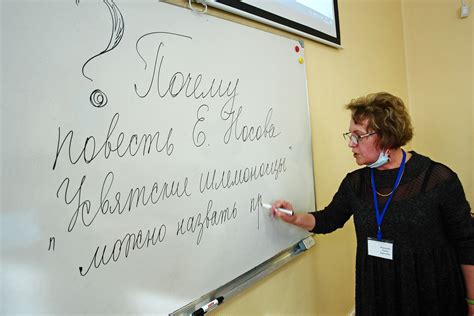 ? Почему
повесть Е. Носова
Усвятские шлемоносцы"
" можно назвать пр